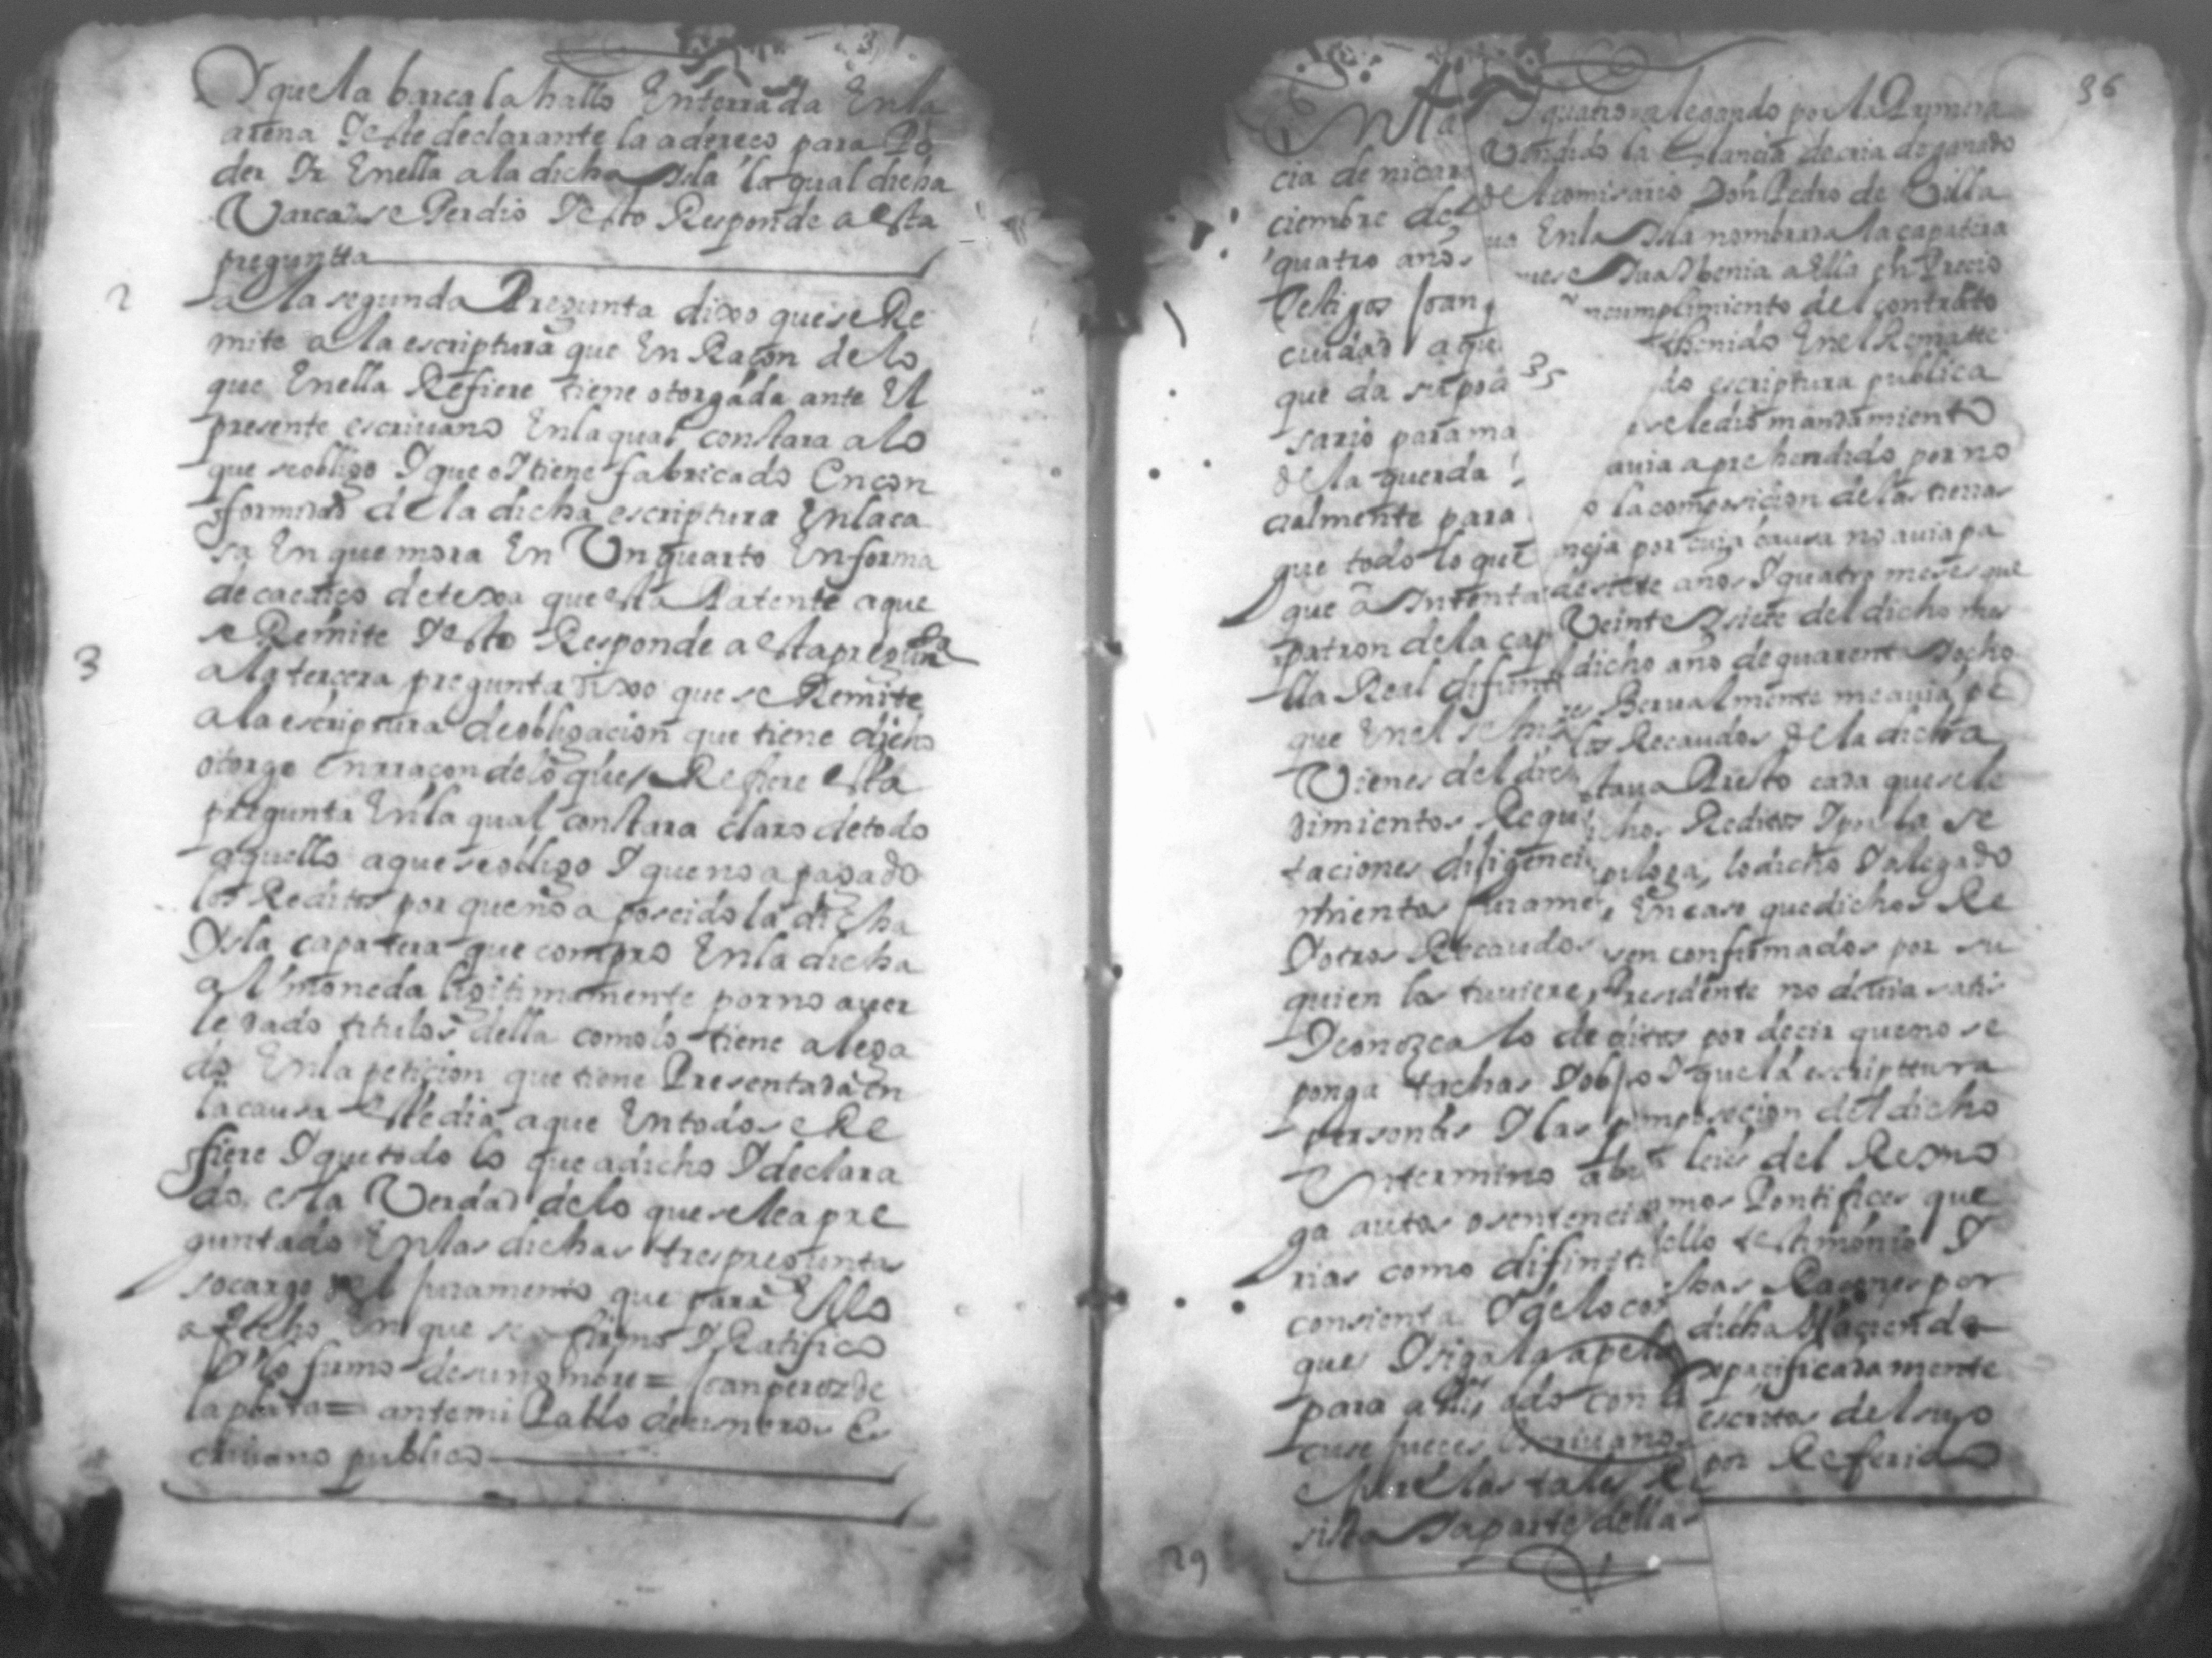 Y que la barca la hallo Enterrada En la
arena Y este declarante la adereço para Po
der Ir En ella a la dicha Isla la qual dicha
Varca se Perdio Y esto Responde a esta
preguntta
2 a la segunda Pregunta dixo que se Re
mite a la escriptura que En Raçon de lo
que En ella Refiere tiene otorgada ante El
presente escriuano En la qual constara a lo
que se obligo Y que oy tiene fabricado En con
formidad de la dicha escriptura En la ca
sa En que mora En Vn quarto En forma
de cadiço de texa que esta Patente a que
se Remite Y esto Responde a esta pregunta
3 a la tercera pregunta dixo que se Remite
a la escriptura de obligacion que tiene dicho
otorgo En rraçon de lo que se Refiere esta
pregunta En la qual constara claro de todo
aquello a que se obligo Y que no a pagado
los Reditos por que no a poseido la dicha
Isla çapatera que compro En la dicha
almoneda ligitimamente por no auer
le dado titulos della como lo tiene alega
do En la peticion que tiene Presentada En
la causa este dia a que En todo se Re
fiere Y que todo lo que a dicho Y declara
do es la Verdad de lo que se le a pre
guntado En las dichas tres preguntas
so cargo del juramento que para Ello
a fecho En que se afirmo Y Ratifico
Y lo firmo de su nombre = Joan perez de
la plata = ante mi Pablo de Es
criuano publico
En la
cia de nicara
ciembre de
quatro años
testigos Joan
ciudad a qu
que da su pod
sario para ma
de la querda
cialmente para
que todo lo que
que a Intenta
patron de la cap
lla Real difunt
que En el
Vienes del dic
dimientos Requ
taciones diligenci
mientos jurame
Y otros Recaudos
quien los tuuiere
Y conozca lo de
ponga tachas Y obj
personas Y las
En termino abr
ga autos o sentencia
rias como difiniti
consienta Y de lo con
que Y siga la apela
para a do con
cuse jueces Escriuanos
Y jure las tales Re
sista Y aparte dellas
29
35
36
Y quatro alegando por la Primera
Vendido la Estancia de cria de ganado
del comisario Don Pedro de Villa
ua En la Isla nombrada la çapatera
uese Iua Y benia a Ella En Precio
ncumplimiento del contrato
thenido En el Rematte
do escriptura publica
se le dio mandamiento
auia aprehendido por no
o la composicion de las tierras
neja por cuia causa no auia pa
de siete años Y quatro meses que
Veinte Y siete del dicho mes
dicho año de quarenta Y ocho
Berualmente me auia pe
los Recaudos de la dicha
staua Presto cada que se le
ichos Reditos Y por la se
puloga, lo dicho Y alegado
En caso que dichos Re
sen confirmados por su
Presidente no deuia satis
ditos por decir que no se
Y que la escripttura
imposicion del dicho
leies del Reyno
mos Pontifices que
ello testimonio Y
chas Raçones por
dicha Hacienda
specificadamente
escritos del suso
por Referido